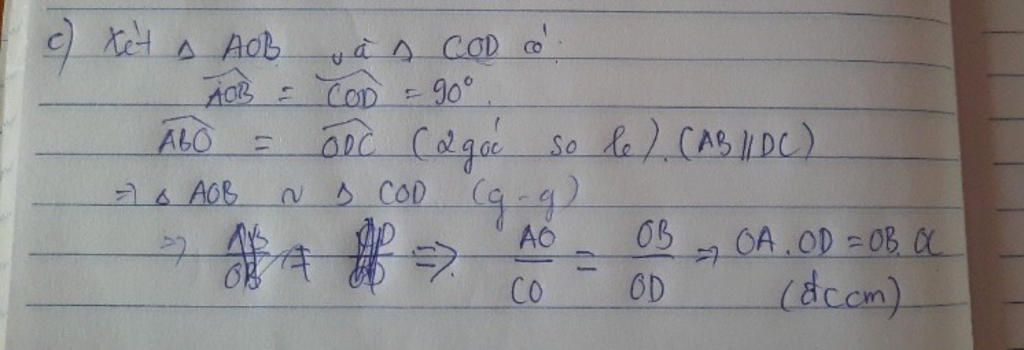 c) Xét Δ AOB và Δ COD có:
\widehat{AOB} = \widehat{COD} = 90°.
\widehat{ABO} = \widehat{ODC} (2 góc so le). (AB // DC)
=> Δ AOB ~ Δ COD (g-g)
=> => \frac{AO}{CO} = \frac{OB}{OD} => OA.OD = OB.OC
(đccm)